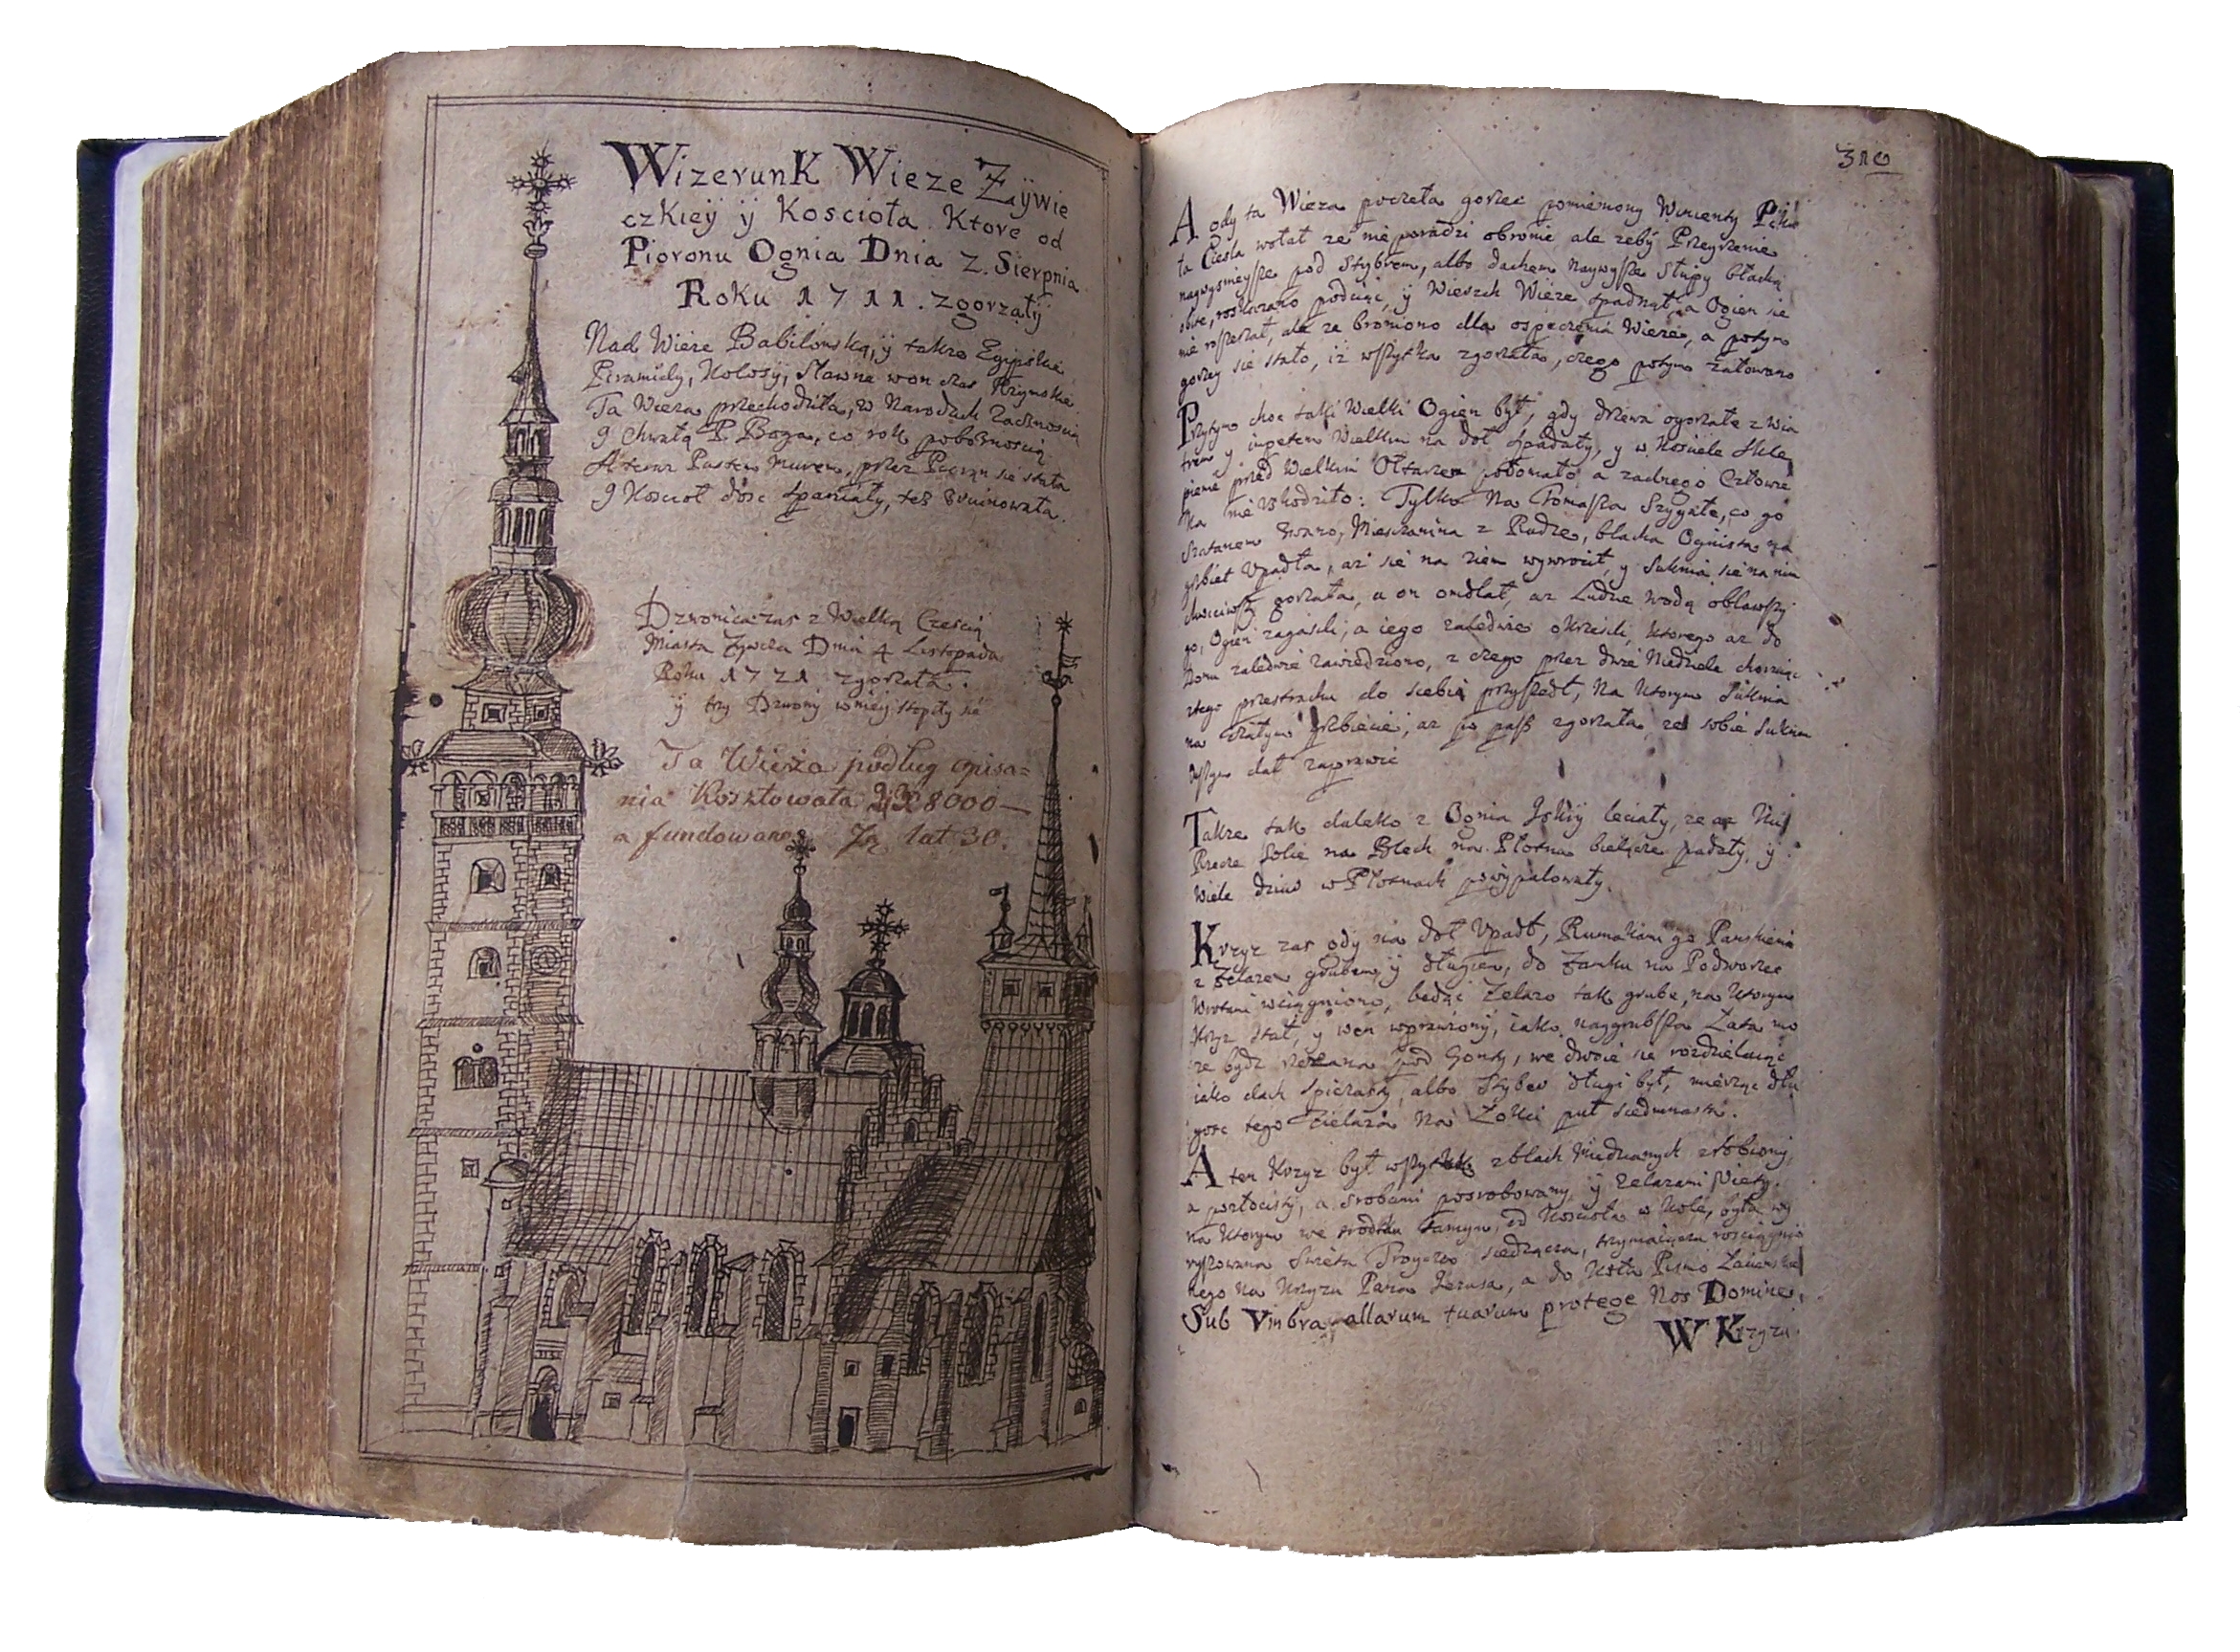 Wizerunk Wieze Zÿwie
czkieÿ ÿ Kosciola Ktore od
Pioronu Ognia Dnia 2. Sierpnia
Roku 1711. zgorzałÿ
Nad Wieze Babilonską, ÿ takze Egipskie
Piramidy, Kolosÿ, Sławne won czas Rzymskie
Ta Wieza przechodziła, w Narodach Zacnoscią
y Chwałą P. Boga, co rok poboznoscią
A teraz Pustem murem, przez Piorun sie stała
y Kosciol dosc spaniały, tez
Dzwonica zas z Wielką Czescią
Miasta Zywca Dnia 4 Listopada
Roku 1721 zgorzała.
ÿ trzy Dzwony wniey stopiły sie
Ta Wieża podług opisa=
nia kosztowała 8000—
a fundowano Ją lat 30.
310
A gdy ta Wieza poczeła gorzec pomieniony Wincenty
ta Ciesla wołał ze nie poradzi obronic ale zeby Przeyrzenie
pod Stybrem, albo dachem naywysze Słupy blachą
obite, podciąc, ÿ Wierzch Wieze spadnął, a Ogien sie
nie ale ze broniono dla Wieze, a potym
gorzey sie stało, iz wszytka zgorzała, czego potym załowano
Przytym choc taki Wielki Ogien był, gdy drzewa ogorzałe z Wia
trem y impetem Wielkim na doł spadały, y w Kosciele Skle
pienie przed Wielkim Ołtarzem połomało, a zadnego Człowie
ka nie Vzkodziło: Tylko na Tomasza co go
Szatanem zwano, Mieszczanina z Rudze, blacha Ognista na
grzbiet Vpadła, az sie na ziem wywrocił, y Suknia sie na nim
zgorzała, a on omdlał, az Ludzie wodą oblawszy
go, Ogien zagasili, a iego zaledwie okrzesili, ktorego az do
Domu zaledwie zawiedziono, z czego przez dwie Niedziele choruiąc
ztego przestrachu do siebie przyszedł, na ktorym Suknia
na grzbiecie, az po pass zgorzała, ze sobie Suknią
dał zaprawic
Takze tak daleko z Ognia Iskry leciały, ze az
Rzece Sole na Blech na Płotna bielące padały, ÿ
Wiele dziur w Płotnach powÿpalowały.
Krzyz zas gdy na doł Vpadł, Rumakami go Panskiemi
z Zelazem grubem, ÿ długiem, do Zamku na Podworzec
Wrotami wciągniono, bedąc Zelazo tak grube, na ktorym
Krzyz stał, y won wprawiony, iako naygrubsza Łata mo
ze bydz rzezana pod Gonty, we dwoie sie rozdzielaiąc
iako dach spiczasty, albo Styber długi był, mierząc dłu
gosc tego Zielaza na Łokci puł siedmnasta.
A ten Krzyz był wszytek z blach Miedzianych zrobiony,
a pozłocisty, a srobami posrobowany, ÿ zelazami
na ktorym we srodku samym, od Kosciola w Kole, była wy
rysowana Swieta Troyca siedząca, trzymaiąca rosciągnio
nego na Krzyzu Pana Jezusa, a do Koła Pismo Łacinskie
Sub Vmbra allarum tuarum protege Nos Domine.
W Krzyzu